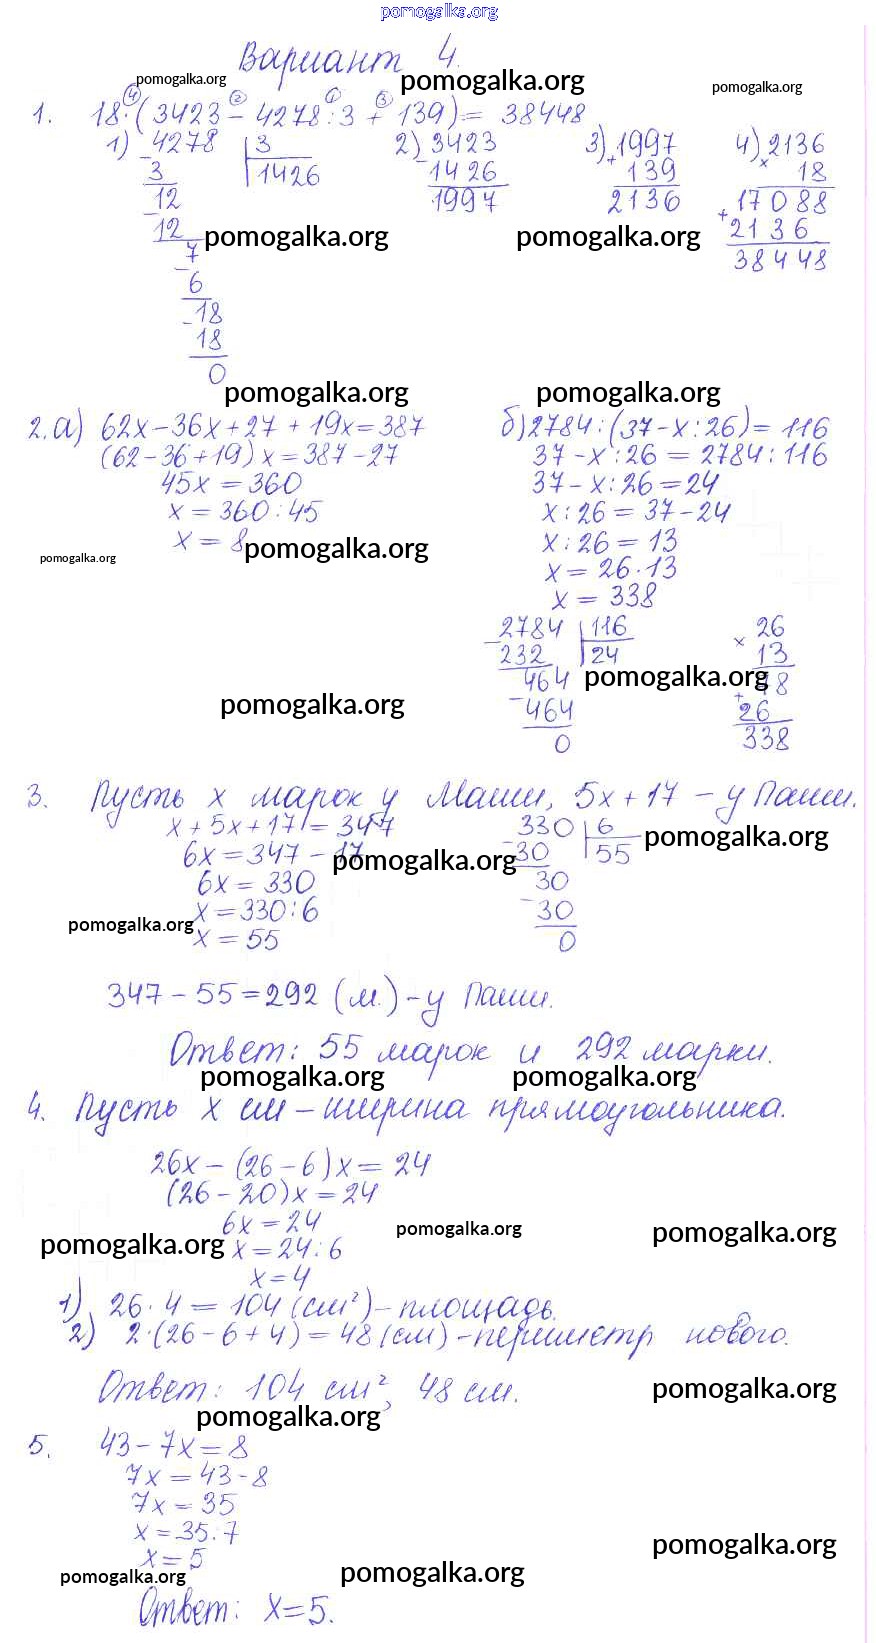 pomogalka.org
Вариант 4.
pomogalka.org pomogalka.org pomogalka.org
④ ② ① ③
1. 18·(3423 − 4278:3 + 139) = 38448
1) 4278 | 3 2) 3423 3) 1997 4) 2136
− 3 | 1426 − 1426 + 139 × 18
12 1997 2136 17088
− 12 + 2136
7 38448
pomogalka.org pomogalka.org
− 6
18
− 18
0
pomogalka.org pomogalka.org
2. а) 62x − 36x + 27 + 19x = 387 б) 2784 : (37 − x : 26) = 116
(62 − 36 + 19) x = 387 − 27 37 − x : 26 = 2784 : 116
45x = 360 37 − x : 26 = 24
x = 360 : 45 x : 26 = 37 − 24
x = 8 x : 26 = 13
pomogalka.org pomogalka.org
x = 26 · 13
x = 338
2784 | 116 26
− 232 | 24 × 13
464 78
pomogalka.org
− 464 + 26
pomogalka.org
0 338
3. Пусть x марок у Маши, 5x + 17 − у Паши.
x + 5x + 17 = 347 330 | 6
pomogalka.org
6x = 347 − 17 − 30 | 55
pomogalka.org
6x = 330 30
x = 330 : 6 − 30
pomogalka.org
x = 55 0
347 − 55 = 292 (м.) − у Паши.
Ответ: 55 марок и 292 марки.
pomogalka.org pomogalka.org
4. Пусть x см − ширина прямоугольника.
26x − (26 − 6) x = 24
(26 − 20) x = 24
6x = 24
pomogalka.org pomogalka.org pomogalka.org
x = 24 : 6
x = 4
1) 26 · 4 = 104 (см²) − площадь.
2) 2 · (26 − 6 + 4) = 48 (см) − периметр нового.
Ответ: 104 см², 48 см.
pomogalka.org
pomogalka.org
5. 43 − 7x = 8
7x = 43 − 8
7x = 35
x = 35 : 7
pomogalka.org
x = 5
pomogalka.org pomogalka.org
Ответ: x = 5.